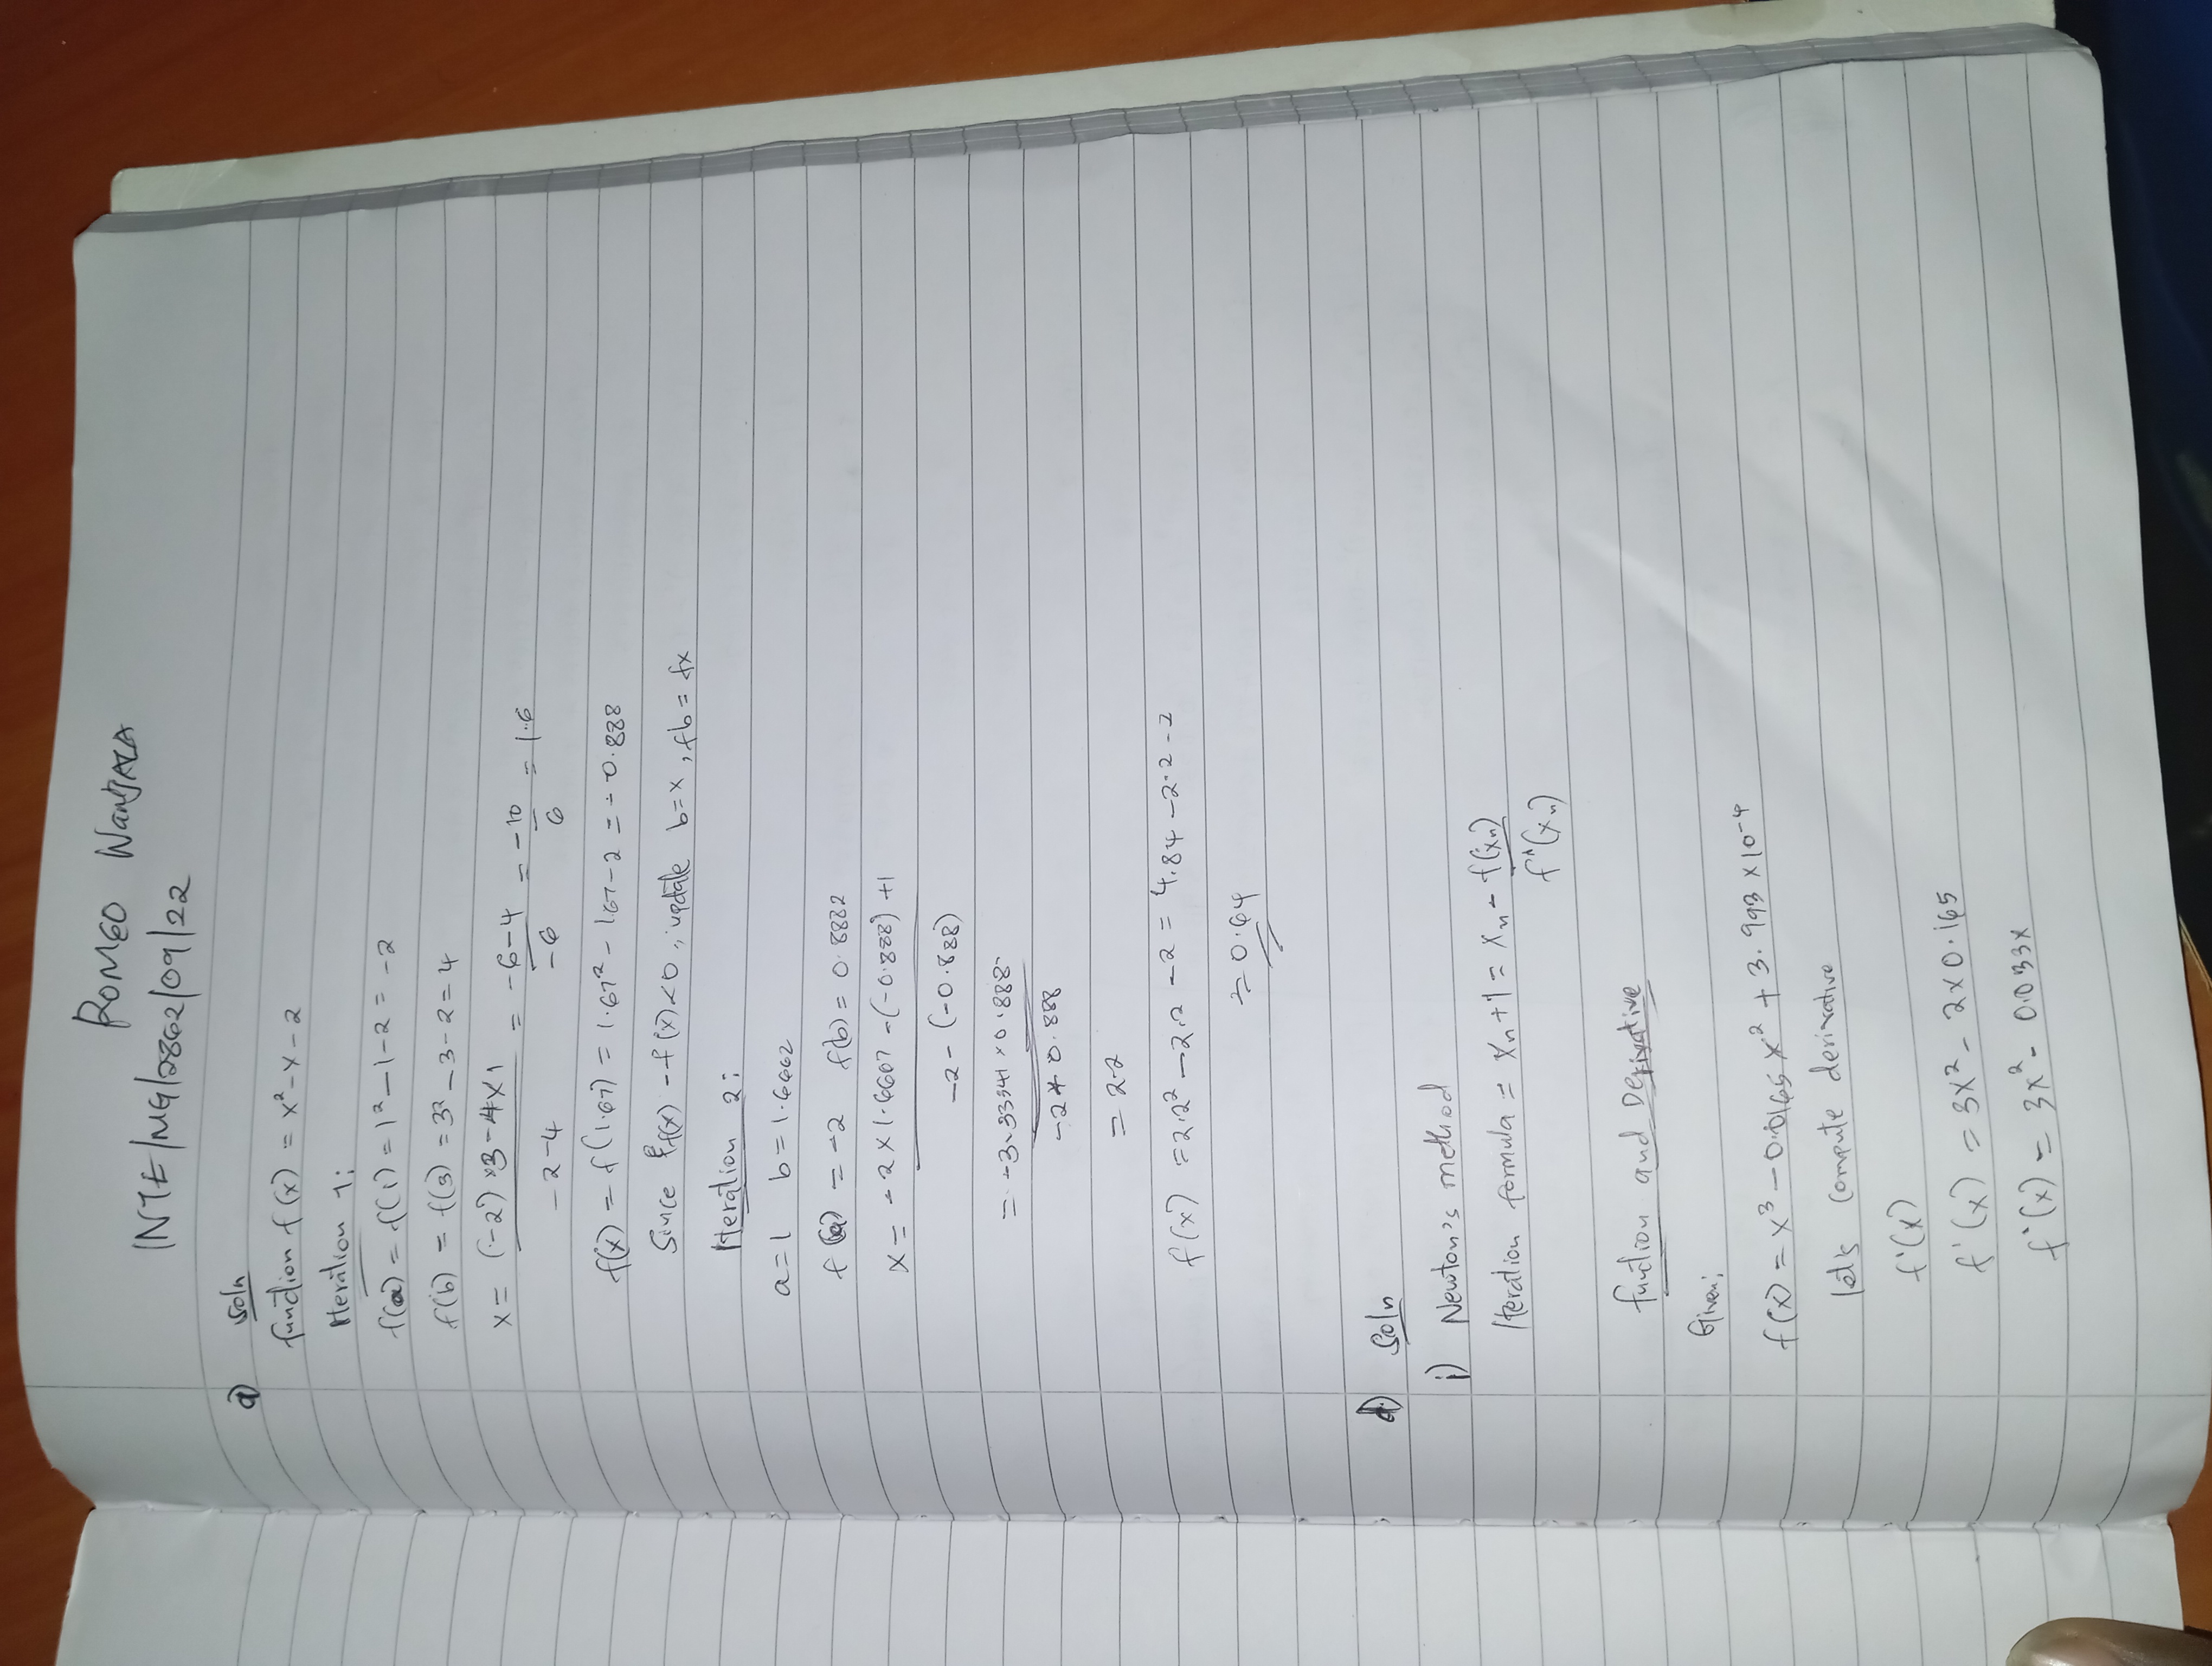 ROMEO WANJALA
INTE/MG/2862/09/22
a) Soln
function f(x) = x² - x - 2
Iteration 1:
f(a) = f(1) = 1² - 1 - 2 = -2
f(b) = f(3) = 3² - 3 - 2 = 4
x = (-2) × 3 - 4 × 1 / -2 - 4 = -6 - 4 / -6 = -10 / 6 = 1.6
f(x) = f(1.67) = 1.67² - 1.67 - 2 = -0.888
Since f(x) - f(x) < 0, update b = x, fb = fx
Iteration 2:
a = 1 b = 1.6662
f(a) = -2 f(b) = 0.8882
x = -2 × 1.6667 - (-0.888) + 1 / -2 - (-0.888)
= -3.33341 × 0.888 / -2 + 0.888
= 2.2
f(x) = 2.2² - 2.2 - 2 = 4.84 - 2.2 - 2
= 0.64
d) Soln
i) Newton's method
Iteration formula = xₙ + 1 = xₙ - f(xₙ) / f'(xₙ)
function and Derivative
Given;
f(x) = x³ - 0.0165x² + 3.993 × 10⁻⁴
let's compute derivative
f'(x)
f'(x) = 3x² - 2 × 0.165
f'(x) = 3x² - 0.033x